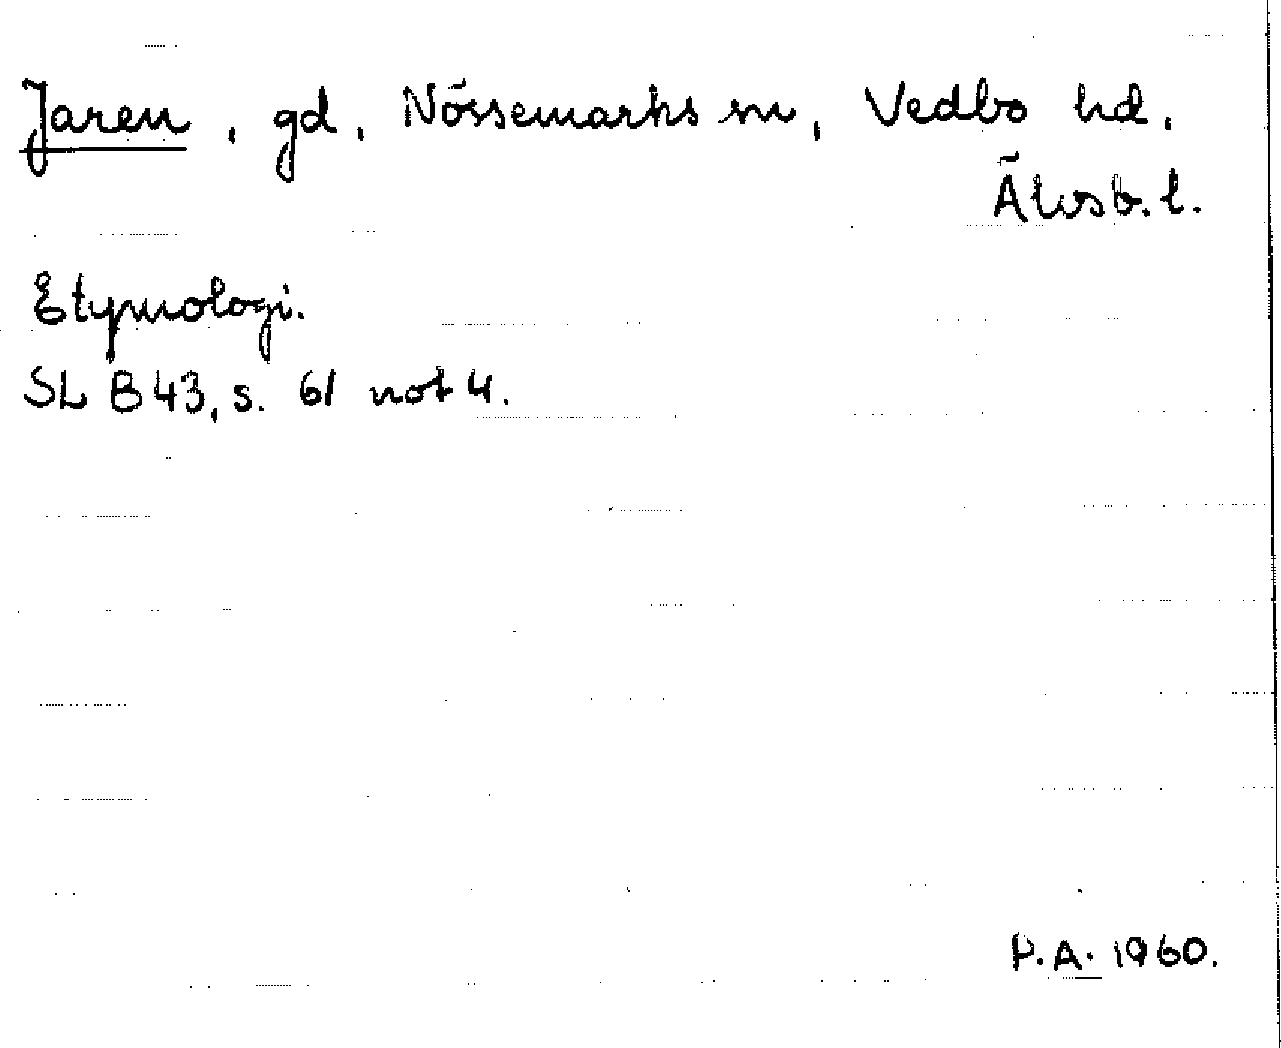 Jaren, gd, Nössemarks sn, Vedbo hd,
Älvsb. l.
Etymologi.
SL B 43, s. 61 not 4.
P.A. 1960.